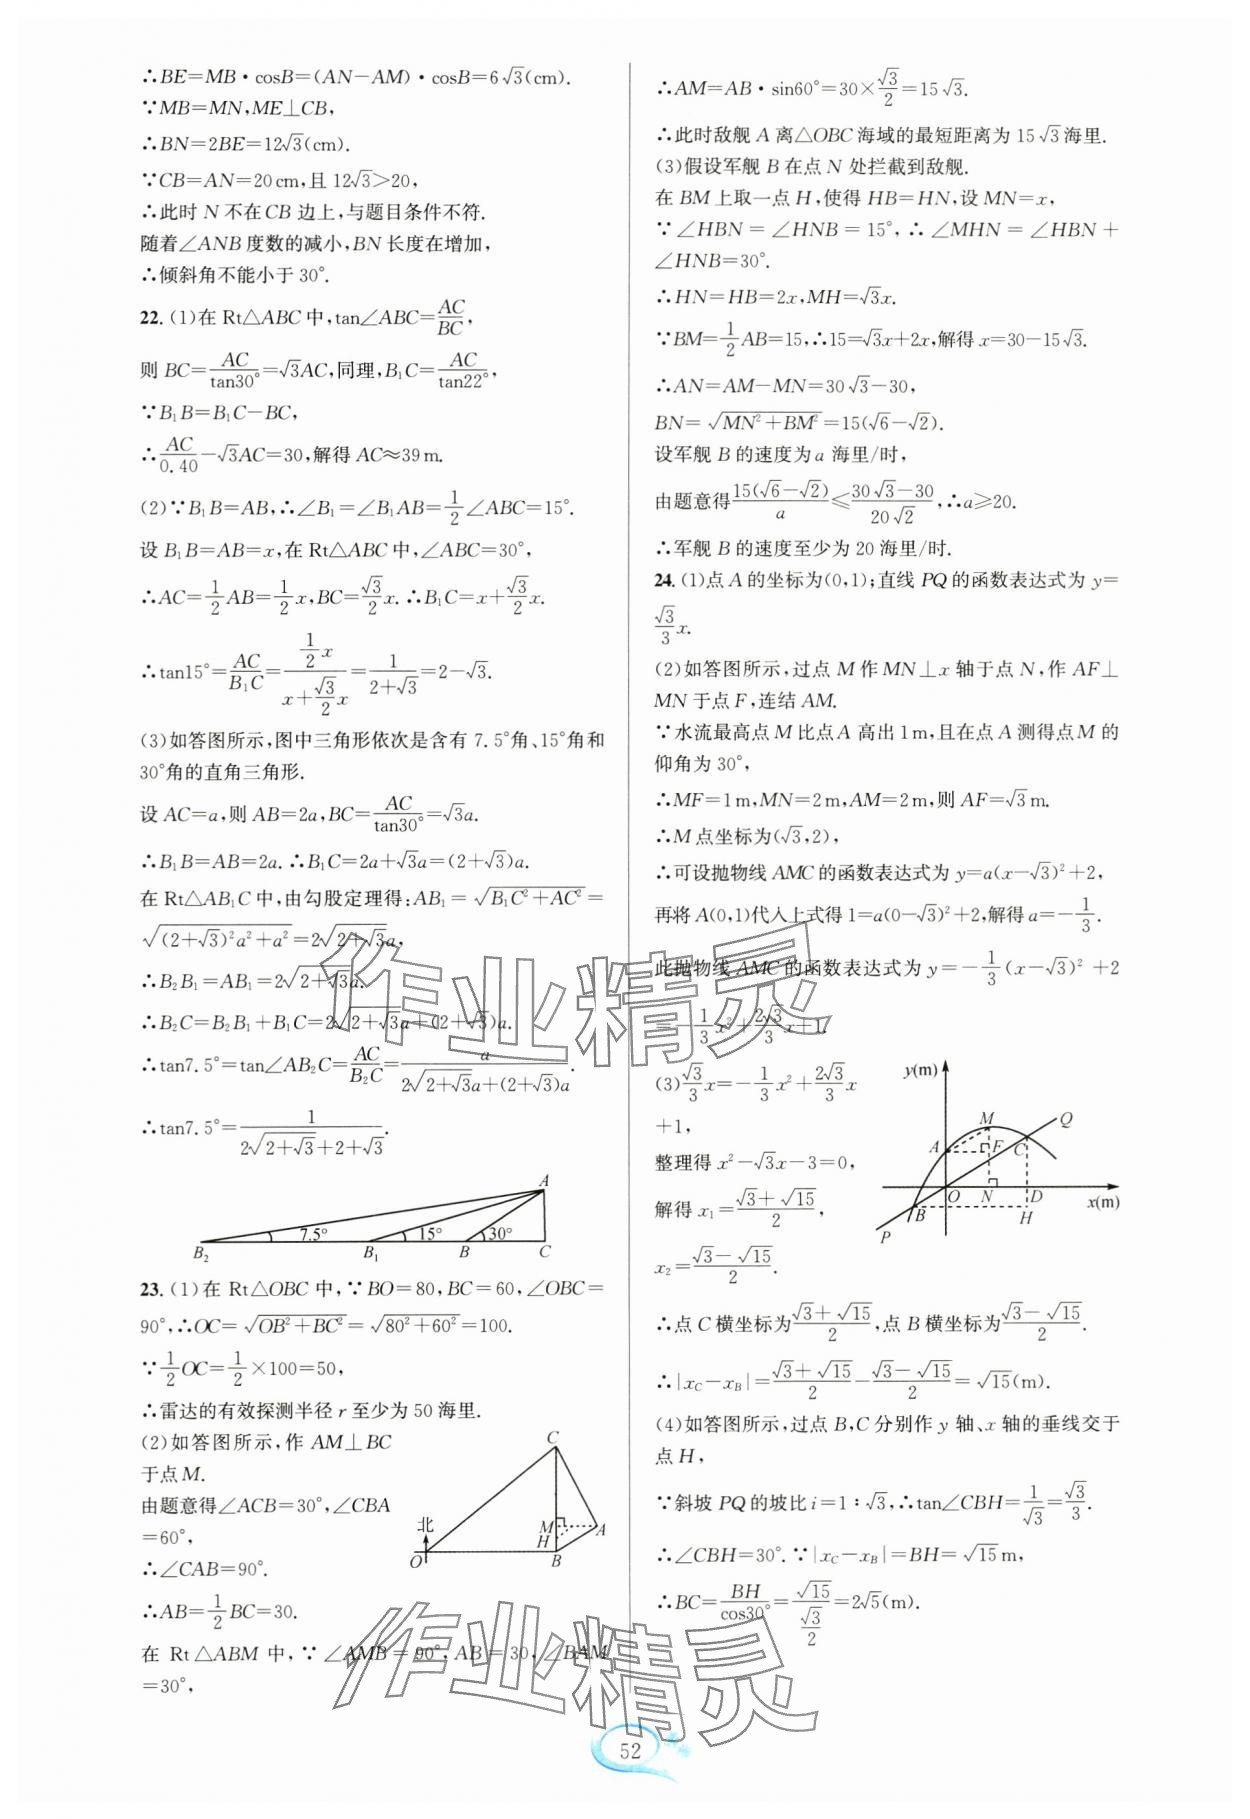 ∴BE=MB·cosB=(AN-AM)·cosB=6√3(cm).
∵MB=MN,ME⊥CB,
∴BN=2BE=12√3(cm).
∵CB=AN=20cm,且12√3>20,
∴此时N不在CB边上,与题目条件不符.
随着∠ANB度数的减小,BN长度在增加,
∴倾斜角不能小于30°.
22.(1)在Rt△ABC中,tan∠ABC=AC/BC,
则BC=AC/tan30°=√3AC,同理,B₁C=AC/tan22°,
∵B₁B=B₁C-BC,
∴AC/0.40-√3AC=30,解得AC≈39m.
(2)∵B₁B=AB,∴∠B₁=∠B₁AB=1/2∠ABC=15°.
设B₁B=AB=x,在Rt△ABC中,∠ABC=30°,
∴AC=1/2AB=1/2x,BC=√3/2x.∴B₁C=x+√3/2x.
∴tan15°=AC/B₁C=(1/2x)/(x+√3/2x)=1/(2+√3)=2-√3.
(3)如答图所示,图中三角形依次是含有7.5°角、15°角和
30°角的直角三角形.
设AC=a,则AB=2a,BC=AC/tan30°=√3a.
∴B₁B=AB=2a.∴B₁C=2a+√3a=(2+√3)a.
在Rt△AB₁C中,由勾股定理得:AB₁=√(B₁C²+AC²)=
√((2+√3)²a²+a²)=2√(2+√3)a,
∴B₂B₁=AB₁=2√(2+√3)a.
∴B₂C=B₂B₁+B₁C=2√(2+√3)a+(2+√3)a.
∴tan7.5°=tan∠AB₂C=AC/B₂C=a/(2√(2+√3)a+(2+√3)a).
∴tan7.5°=1/(2√(2+√3)+2+√3).
A
7.5° 15° 30°
B₂ B₁ B C
23.(1)在Rt△OBC中,∵BO=80,BC=60,∠OBC=
90°,∴OC=√(OB²+BC²)=√(80²+60²)=100.
∵1/2OC=1/2×100=50,
∴雷达的有效探测半径r至少为50海里.
(2)如答图所示,作AM⊥BC
于点M.
由题意得∠ACB=30°,∠CBA
=60°,
∴∠CAB=90°.
∴AB=1/2BC=30.
C
北
M A
H
O B
在Rt△ABM中,∵∠AMB=90°,AB=30,∠BAM
=30°,
∴AM=AB·sin60°=30×√3/2=15√3.
∴此时敌舰A离△OBC海域的最短距离为15√3海里.
(3)假设军舰B在点N处拦截到敌舰.
在BM上取一点H,使得HB=HN,设MN=x,
∵∠HBN=∠HNB=15°,∴∠MHN=∠HBN+
∠HNB=30°.
∴HN=HB=2x,MH=√3x.
∵BM=1/2AB=15,∴15=√3x+2x,解得x=30-15√3.
∴AN=AM-MN=30√3-30,
BN=√(MN²+BM²)=15(√6-√2).
设军舰B的速度为a海里/时,
由题意得15(√6-√2)/a≤(30√3-30)/20√2,∴a≥20.
∴军舰B的速度至少为20海里/时.
24.(1)点A的坐标为(0,1);直线PQ的函数表达式为y=
√3/3x.
(2)如答图所示,过点M作MN⊥x轴于点N,作AF⊥
MN于点F,连结AM.
∵水流最高点M比点A高出1m,且在点A测得点M的
仰角为30°,
∴MF=1m,MN=2m,AM=2m,则AF=√3m.
∴M点坐标为(√3,2),
∴可设抛物线AMC的函数表达式为y=a(x-√3)²+2,
再将A(0,1)代入上式得1=a(0-√3)²+2,解得a=-1/3.
此抛物线AMC的函数表达式为y=-1/3(x-√3)²+2
=-1/3x²+2√3/3x+1.
(3)√3/3x=-1/3x²+2√3/3x
+1,
整理得x²-√3x-3=0,
解得x₁=(√3+√15)/2,
x₂=(√3-√15)/2.
y(m)
M Q
A F C
O N D
B H x(m)
P
∴点C横坐标为(√3+√15)/2,点B横坐标为(√3-√15)/2.
∴|x_C-x_B|=(√3+√15)/2-(√3-√15)/2=√15(m).
(4)如答图所示,过点B,C分别作y轴、x轴的垂线交于
点H,
∵斜坡PQ的坡比i=1∶√3,∴tan∠CBH=1/√3=√3/3.
∴∠CBH=30°.∵|x_C-x_B|=BH=√15m,
∴BC=BH/cos30°=√15/(√3/2)=2√5(m).
作业精灵
作业精灵
52